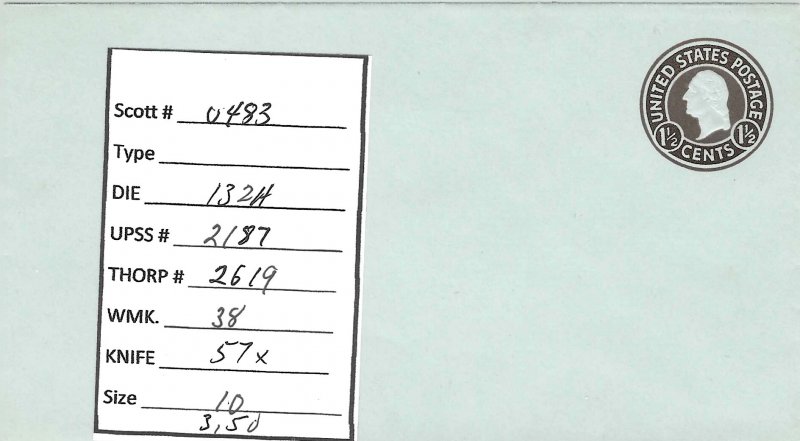 Scott # U483
Type
DIE 132H
UPSS # 2187
THORP # 2619
WMK. 38
KNIFE 57x
Size 10
3,50
UNITED STATES POSTAGE
1½ CENTS 1½